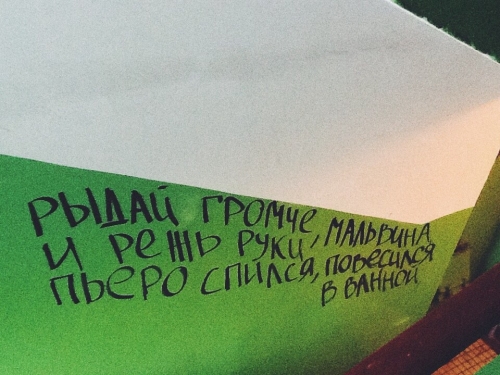 РЫДАЙ ГРОМЧЕ,
И РЕЖЬ РУКИ, МАЛЬВИНА
ПЬЕРО СПИЛСЯ, ПОВЕСИЛСЯ
В ВАННОЙ